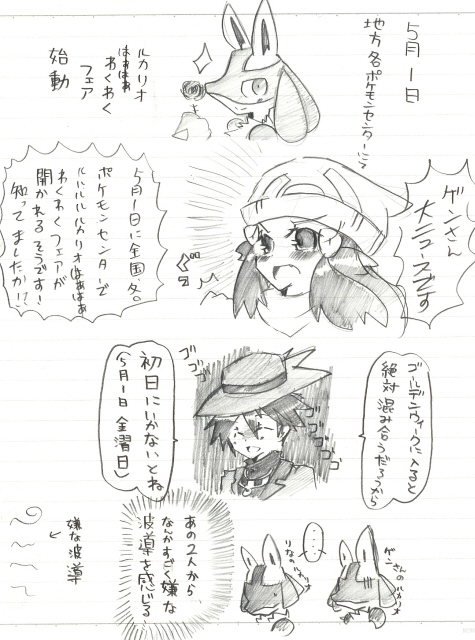 5月1日
地方各ポケモンセンターにて
ルカリオ
はぁはぁ
わくわく
フェア
始動
ゲンさん
大ニュースです
ぐっ
5月1日に全国各の
ポケモンセンターで
ルルルルルカリオはぁはぁ
わくわくフェアが
開かれるそうです!
知ってましたか!?
ゴールデンウィークに入ると
絶対混み合うだろうから
ゴゴゴ
ゴゴゴゴ
初日にいかないとね
(5月1日 金曜日)
ゲンさんのルカリオ
・・・
りなのルカリオ
あの2人から
なんかすごく嫌な
波導を感じる
嫌な波導